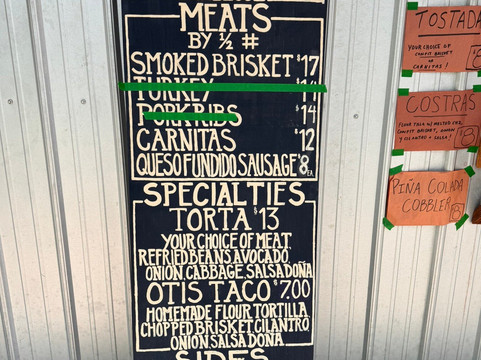 MEATS
BY ½ #
SMOKED BRISKET $17
TURKEY $14
PORK RIBS $14
CARNITAS $12
QUESO FUNDIDO SAUSAGE $8 EA
SPECIALTIES
TORTA $13
YOUR CHOICE OF MEAT,
REFRIED BEANS, AVOCADO,
ONION, CABBAGE, SALSA DOÑA
OTIS TACO $7.00
HOMEMADE FLOUR TORTILLA,
CHOPPED BRISKET, CILANTRO,
ONION, SALSA DOÑA
SIDES
TOSTADA
YOUR CHOICE OF
CONFIT BRISKET
or
CARNITAS!
COSTRAS
FLOUR TACO w/ MELTED CHZ,
CONFIT BRISKET, ONION
Y CILANTRO + SALSA!
8
PIÑA COLADA
COBBLER
8